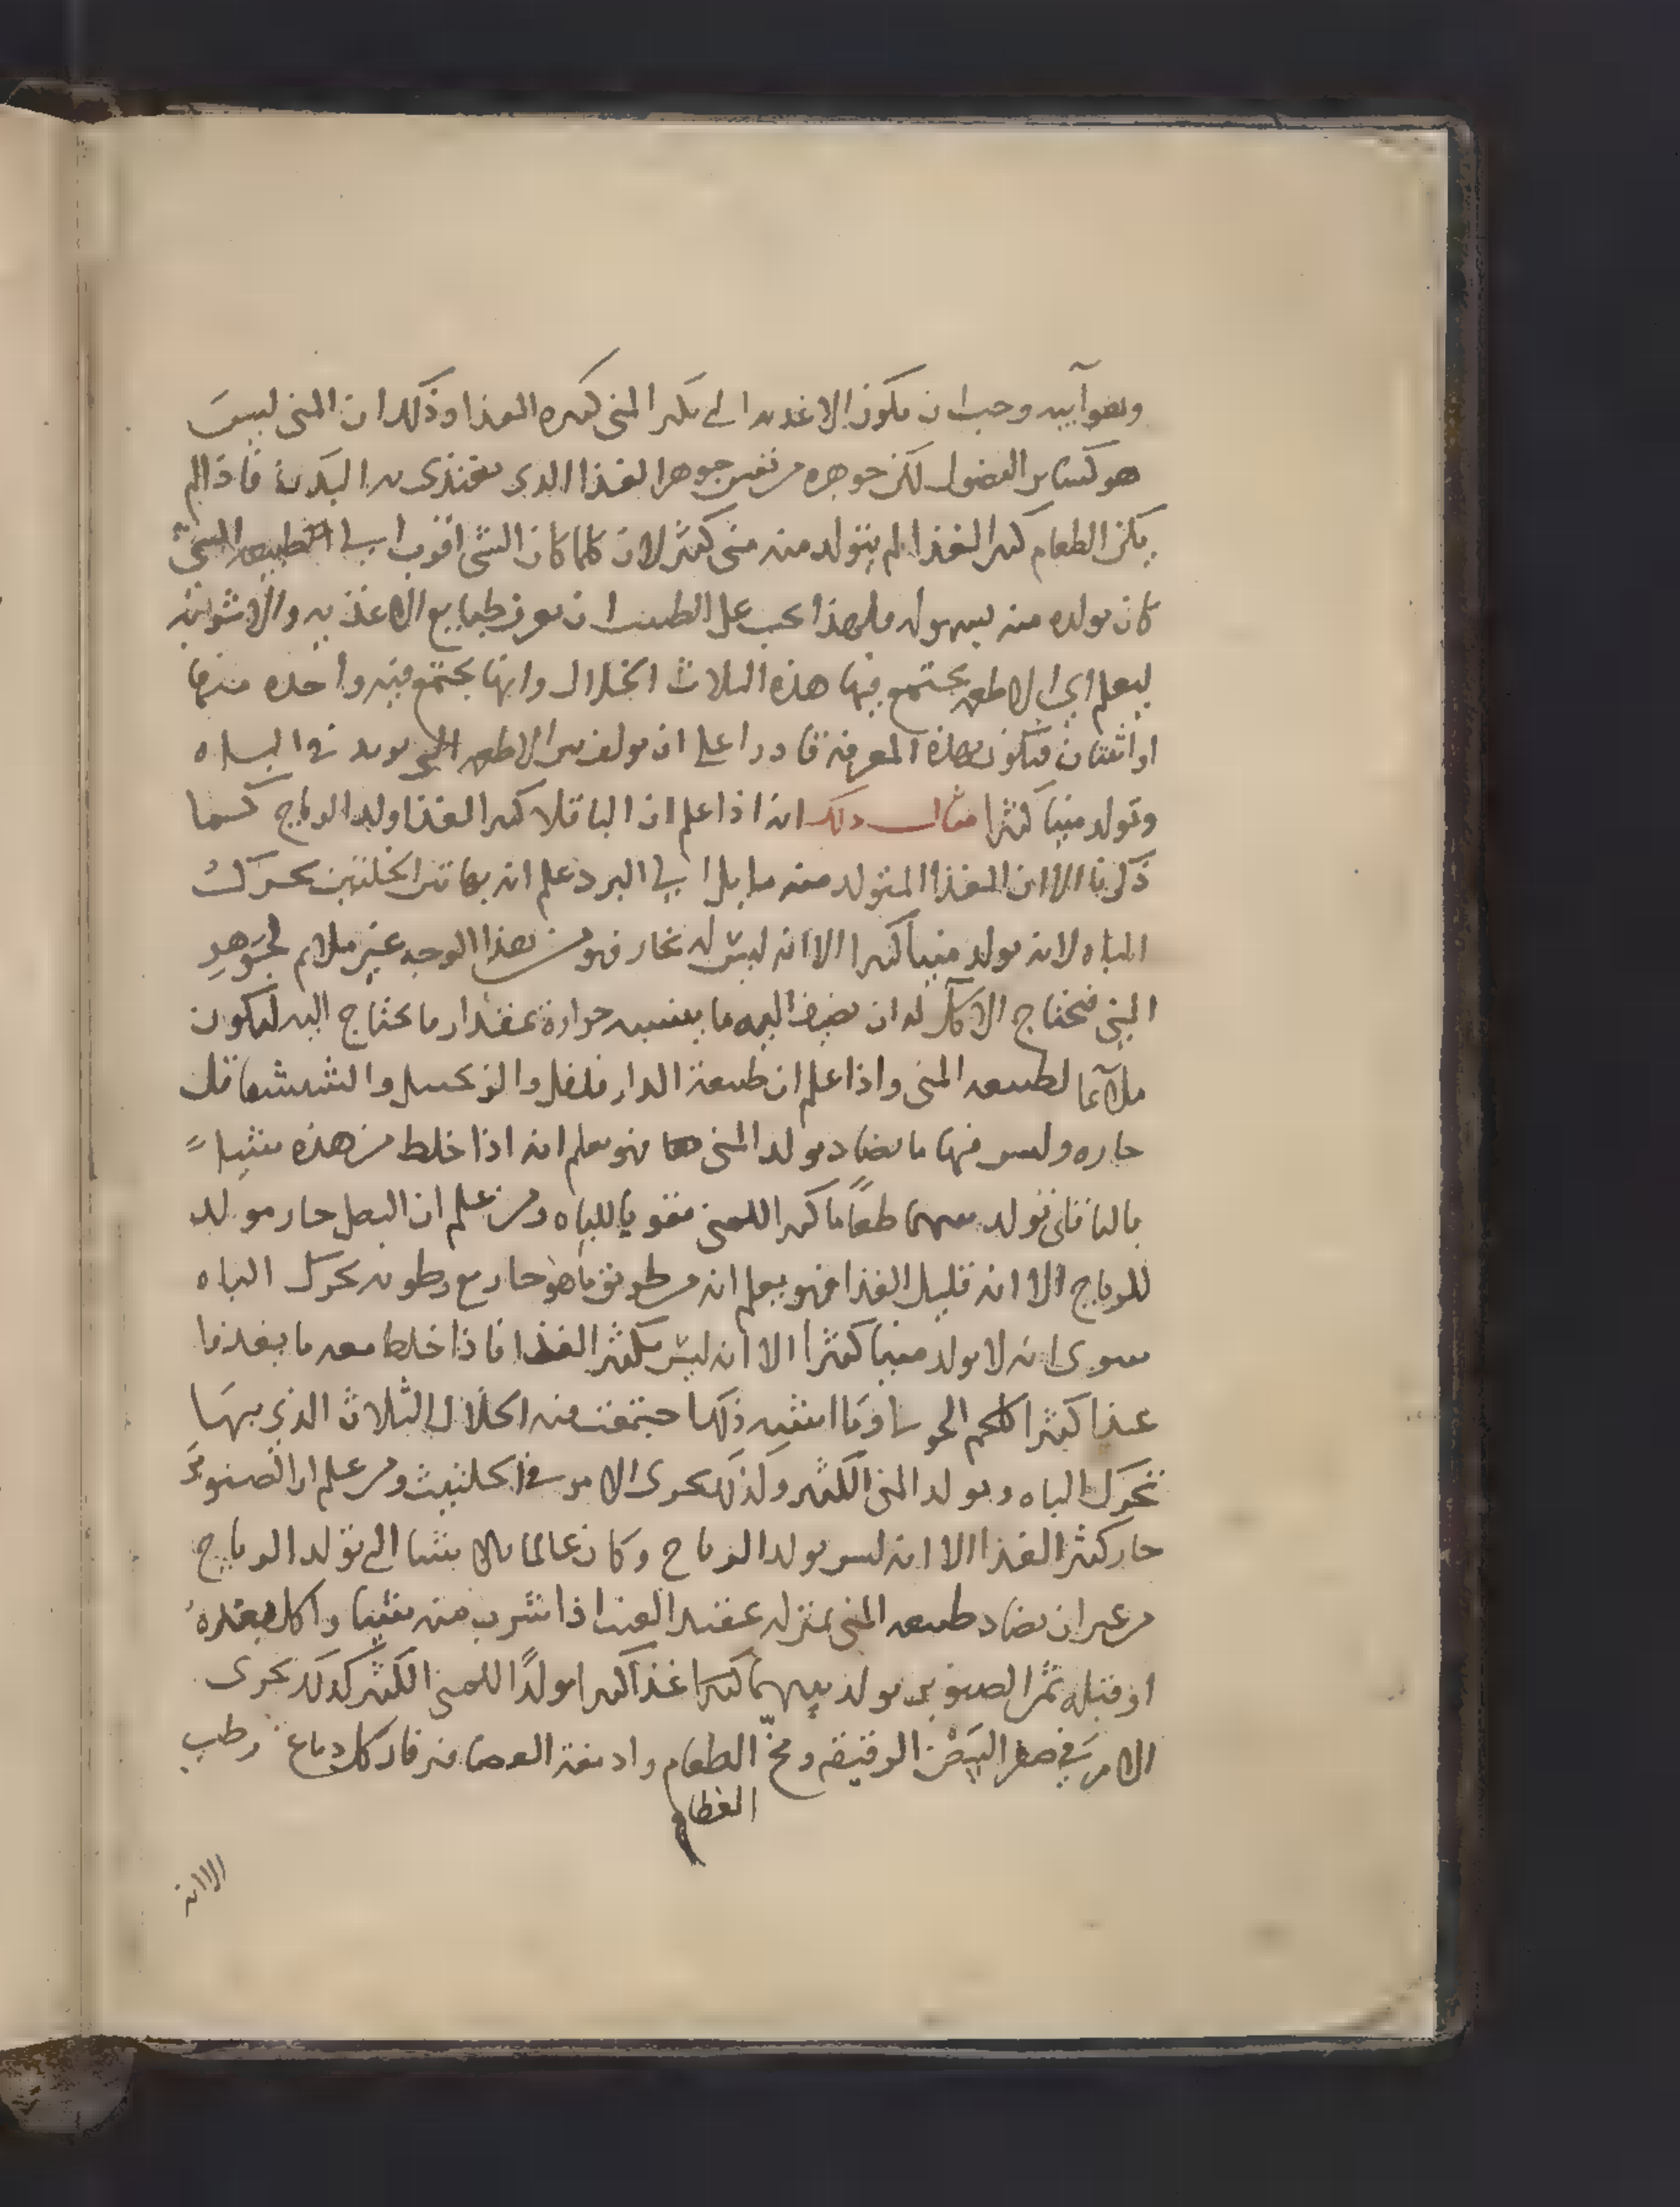 وهوآييه وجب ان يكون الاغذيه التي تكثر المني كثيره الغذا وذلك ان المني ليسَ
هو كساير الفضول لكن جوهره من نفس جوهر الغذا الذي يغتذى به البدن فاذا لم
يكن الطعام كثير الغذا لم يتولد منه مني كثير لان كلما كان الشي اقرب الى الطبيعه الشي
كان تولده منه بسهوله فلهذا يجب على الطبيب ان يعرف طبايع الاغذيه والاشربه
ليعلم اي الاطعمه يجتمع فيها هذه الثلاث الخلال وايها يجتمع فيه واحده منها
او اثنتان فيكون بهذه المعرفة قادرا على ان يولف من الاطعمه التي تزيد في الباه
وتولد منيا كثيرا مثال ذلك انه اذا علم ان الباقلا كثير الغذا ولد الرياح كما
ذكرنا الا ان الغذا المتولد منه مايل الى البرد علم انه بهاتين الخلتين يحرك
الباه لانه يولد منيا كثيرا الا انه ليس له بحار فهو من هذا الوجه غير ملايم لجوهر
المني فيحتاج الاكل له ان يضيف اليه ما يكسبه حرارة بمقدار ما يحتاج اليه ليكون
ملآئما لطبيعه المني واذا علم ان طبيعة الدار فلفل والزنجبيل والششقاقل
حاره وليس فيها ما يضاد تولد المني فهو يعلم انه اذا خلط من هذه شيا
بالباقلى تولد منهما طعاما كثير المني مقويا للباه ومن علم ان البصل حار مولد
للرياح الا انه قليل الغذا فهو يعلم انه من طريق ما هو حار مع رطوبه يحرك الباه
سوى انه لا يولد منيا كثيرا الا انه ليس بكثير الغذا فاذا خلط معه ما يغذوا
غذا كثيرا كلحم وما اشبه ذلك اجتمعت فيه الخلال الثلاث الذي بها
تحرك الباه ويولد المني الكثير وكذلك يجرى الامر في الحلتيت ومن علم ان الصنوبر
حار كثير الغذا الا انه ليس يولد الرياح وكان عالما بالاشيا التي تولد الرياح
من غير ان يضاد طبيعه المني بمنزله عقيد العنب اذا شرب منه شيا واكل بعده
او قبله ثمر الصنوبر تولد بينهما غذا كثيرا مولدًا للمني الكثير كذلك يجرى
الامر في صفر البيض الرقيقه ومخ الطعام وادمغة العصافير فان كل دماغ رطب
العظام
الا انه